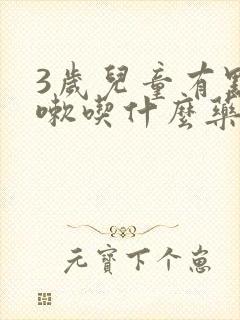 3歲兒童有點
嗽喫什麼藥
元寶下个崽